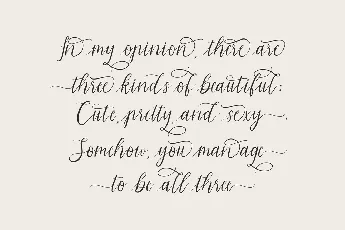 In my opinion, there are
three kinds of beautiful:
Cute, pretty and sexy.
Somehow, you manage
to be all three